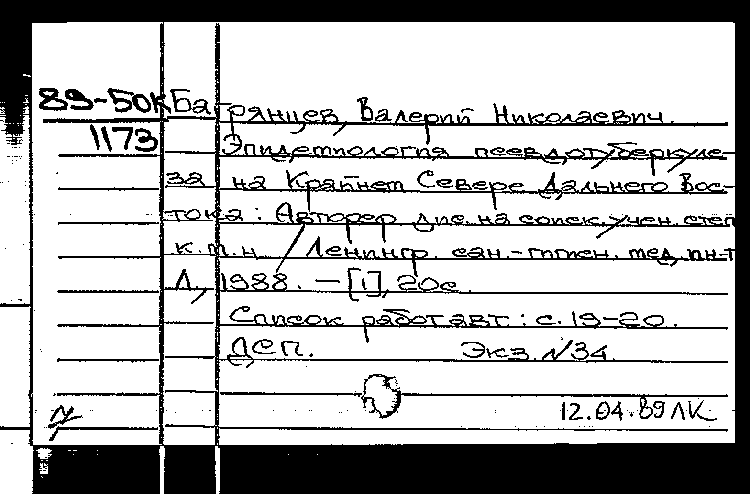 89-50к Багрянцев, Валерий Николаевич.
1173 Эпидемиология псевдотуберкуле-
за на Крайнем Севере Дальнего Вос-
тока : Автореф дис. на соиск. учен. степ
к.м.н. / Ленингр. сан.-гигиен. мед. ин-т
Л., 1988. – [1], 20с.
Список работ авт.: с. 19-20.
ДСП. Экз. №34.
12.04.89 ЛК